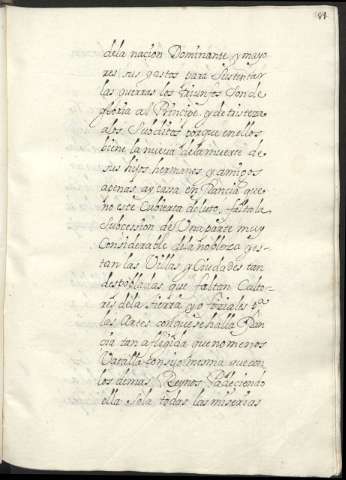 dela nación Dominante y mayo
res sus gastos para Sustentar
las guerras los triunfos son de
gloria al Principe, y de tristeza
alos Subditos porque en ellos
viene la nueva dela muerte de
sus hijos hermanos y amigos
apenas ay casa en Francia que
no esté Cubierta de luto, falta la
Subcession de Una parte muy
Considerable dela nobleza y es-
tan las Villas y Ciudades tan
despobladas que faltan Culto-
res dela tierra y oficiales pa
las Artes conque se halla Fran
cia tan afligida que no menos
Batalla consigo mesma que con
los demas Reynos Padeciendo
ella Sola todas las miserias